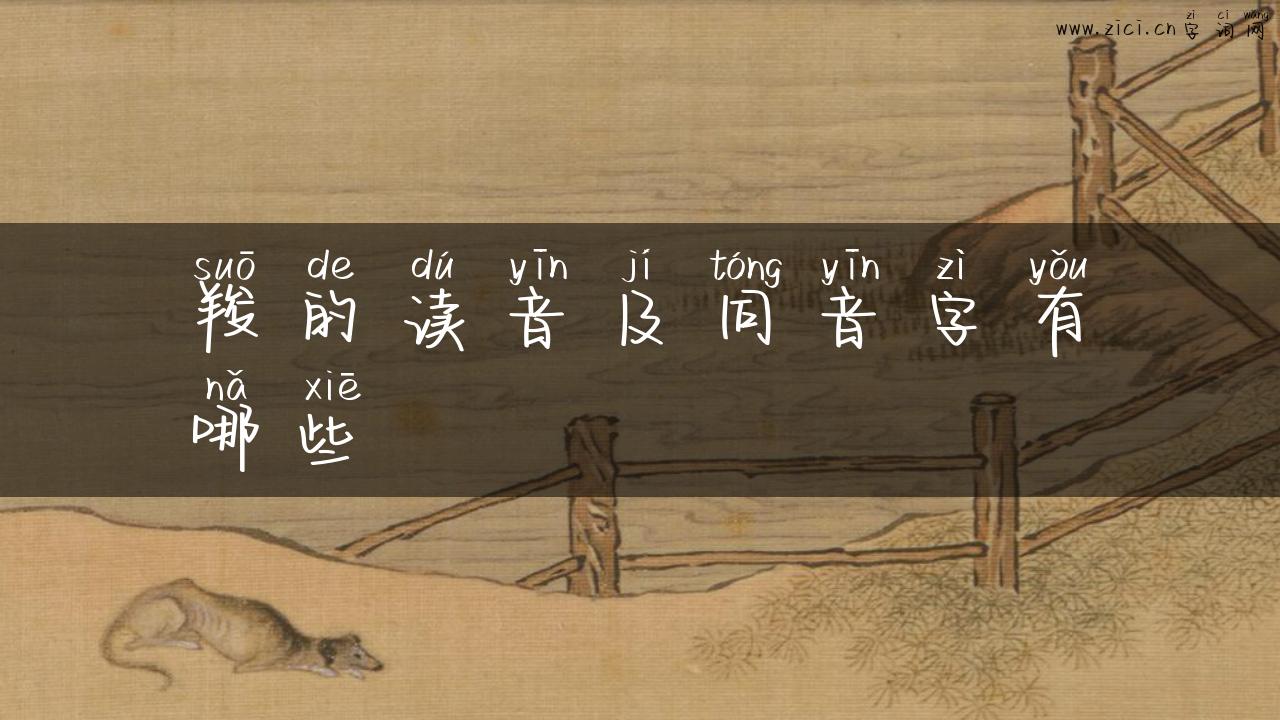 zì cí wǎng
www.zici.cn 字词网
suō de dú yīn jí tóng yīn zì yǒu
羧的读音及同音字有
nǎ xiē
哪些